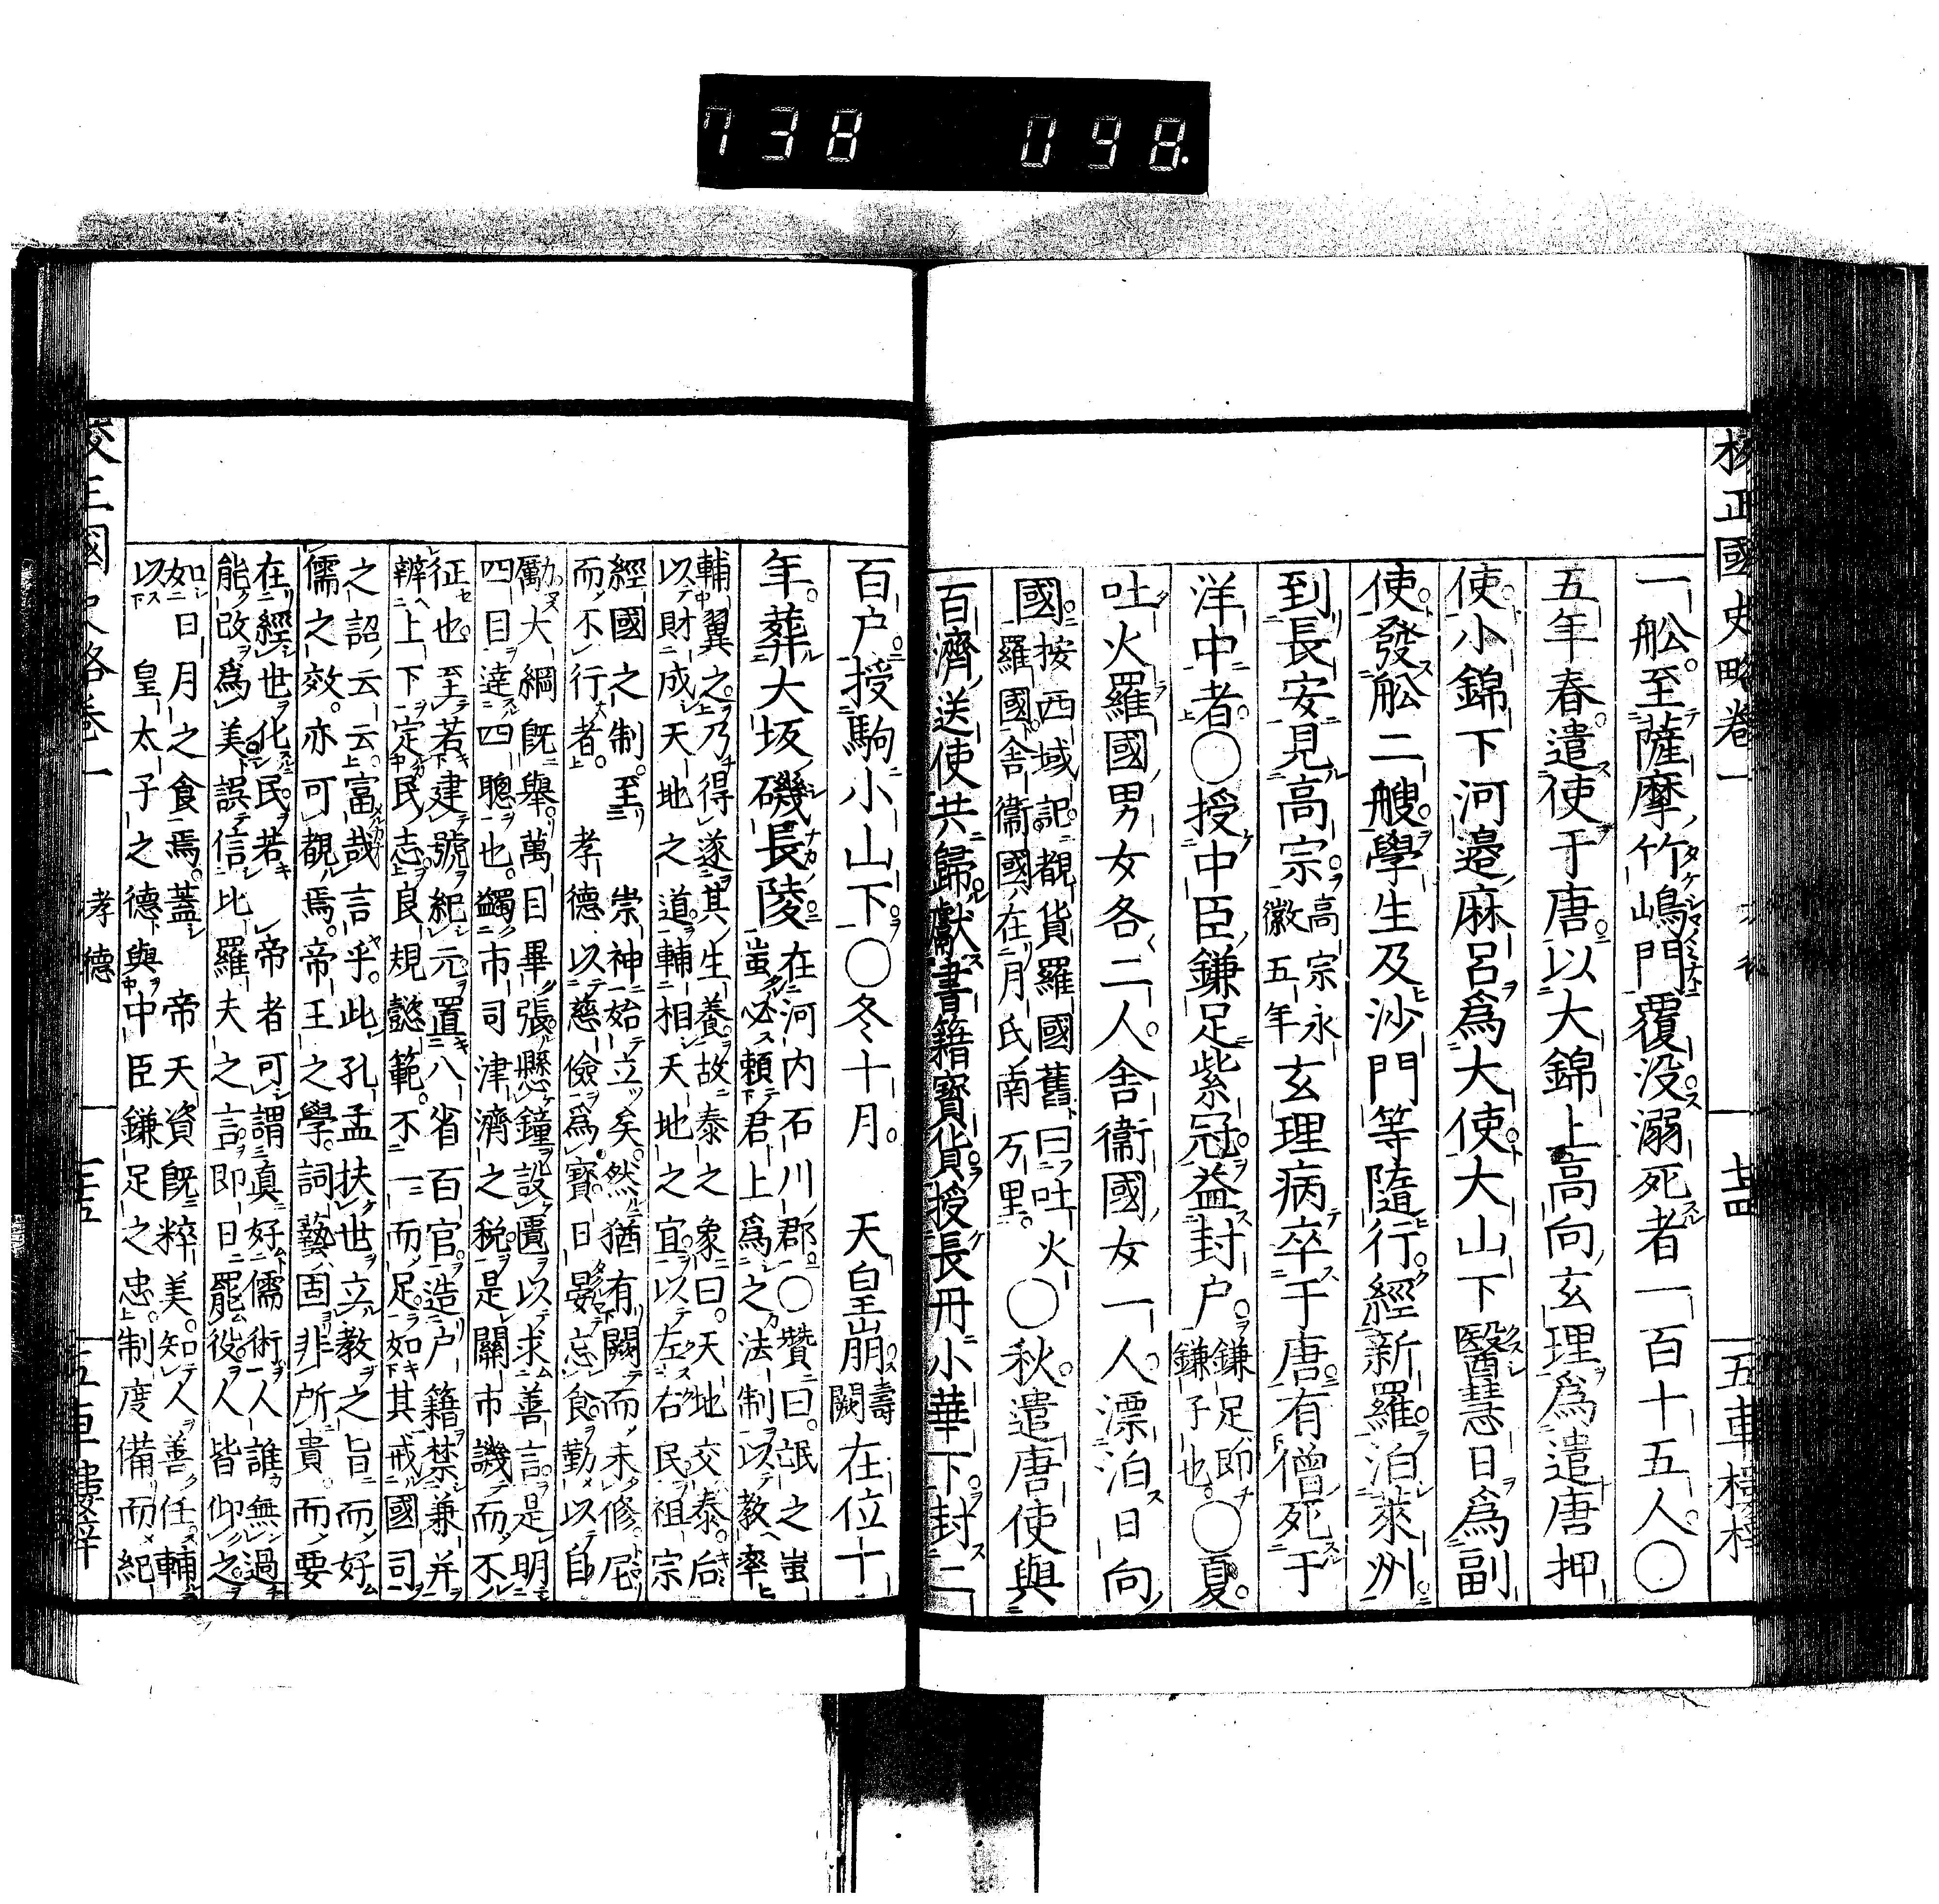 738 098.
校正國史略卷一
五車樓梓
一舩至薩摩竹嶋門覆没溺死者一百十五人〇
五年春遣使于唐以大錦上高向玄理爲遣唐押
使小錦下河邉麻呂爲大使大山下醫慧日爲副
使發舩二艘學生及沙門等隨行經新羅泊萊州
到長安見高宗高宗永徽五年玄理病卒于唐有僧死于
洋中者〇授中臣鎌足紫冠益封户鎌足即鎌子也〇夏
吐火羅國男女各二人舎衞國女一人漂泊日向
國按西域記覩貨羅國舊曰吐火羅國舎衞國在月氏南万里〇秋遣唐使與
百濟送使共歸獻書籍寳貨授長丹小華下封二
百户授駒小山下〇冬十月天皇崩壽闕在位十
年葬大坂磯長陵在河内石川郡〇贊曰氓之蚩
蚩必頼君上爲之法制以教率
輔翼之乃得遂其生養故泰之象曰天地交泰后
以財成天地之道輔相天地之宜以左右民祖宗
經國之制至崇神始立矣然猶有闕而未修
而不行者孝德以慈儉爲寳日晏忘食勤以自
勵大綱既舉萬目畢張懸鐘設匱以求善言是明
四目達四聰也蠲市司津濟之税是關市譏而不
征也至若建號紀元置八省百官造户籍禁兼并
辨上下定民志良規懿範不一而足如其戒國司
之詔云云富哉言乎此孔孟扶世立教之旨而好
儒之效亦可覩焉帝王之學詞藝固非所貴而要
在經世化民若帝者可謂真好儒術人誰無過
能改爲美誤信比羅夫之言即日罷役人皆仰之
如日月之食焉蓋帝天資既粹美知人善任輔
以皇太子之德與中臣鎌足之忠制度備而紀
孝德
五車樓梓